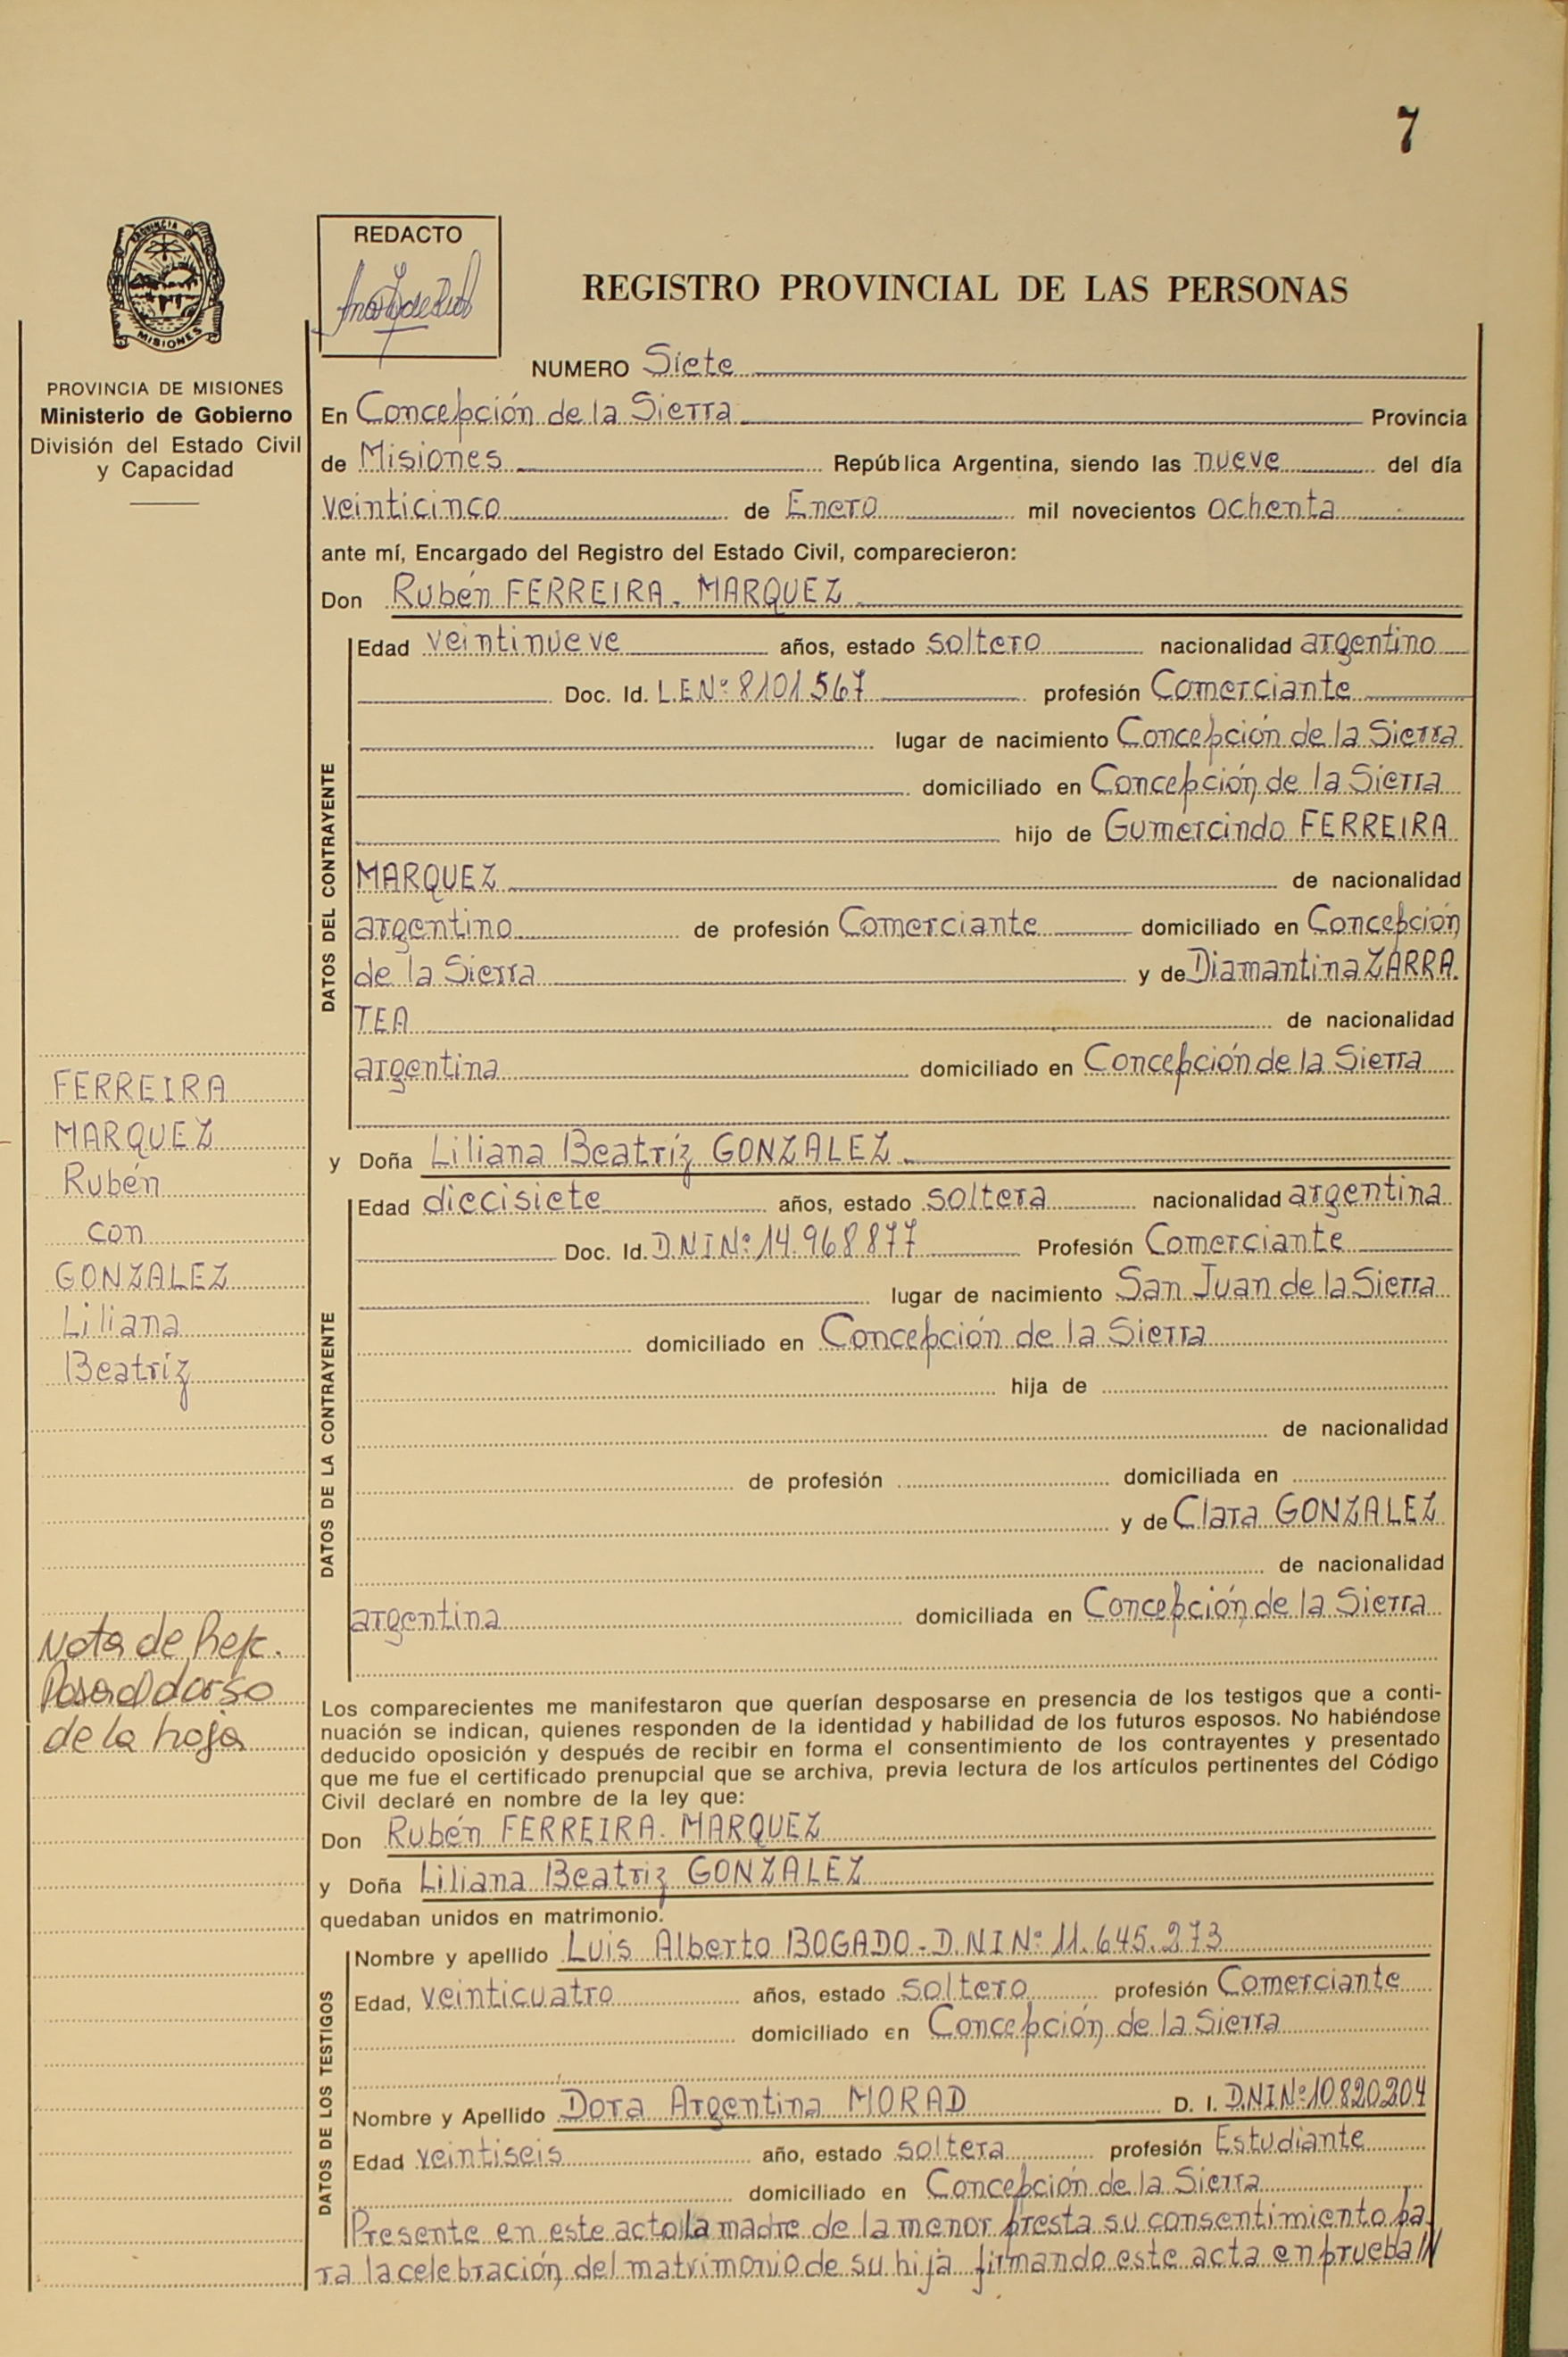 7
PROVINCIA DE
MISIONES
PROVINCIA DE MISIONES
Ministerio de Gobierno
División del Estado Civil
y Capacidad
REDACTO
REGISTRO PROVINCIAL DE LAS PERSONAS
NUMERO Siete
En Concepción de la Sierra Provincia
de Misiones República Argentina, siendo las nueve del día
veinticinco de Enero mil novecientos ochenta
ante mí, Encargado del Registro del Estado Civil, comparecieron:
Don Rubén FERREIRA. MARQUEZ
DATOS DEL CONTRAYENTE
Edad veintinueve años, estado soltero nacionalidad argentino
Doc. Id. L.E.Nº 8101567 profesión Comerciante
lugar de nacimiento Concepción de la Sierra
domiciliado en Concepción de la Sierra
hijo de Gumercindo FERREIRA
MARQUEZ de nacionalidad
argentino de profesión Comerciante domiciliado en Concepción
de la Sierra y de Diamantina ZARRA.
TEA de nacionalidad
argentina domiciliado en Concepción de la Sierra
FERREIRA
MARQUEZ
Rubén
con
GONZALEZ
Liliana
Beatríz
y Doña Liliana Beatríz GONZALEZ
DATOS DE LA CONTRAYENTE
Edad diecisiete años, estado soltera nacionalidad argentina
Doc. Id. D.N.I.Nº 14.968877 Profesión Comerciante
lugar de nacimiento San Juan de la Sierra
domiciliado en Concepción de la Sierra
hija de
de nacionalidad
de profesión domiciliada en
y de Clara GONZALEZ
de nacionalidad
argentina domiciliada en Concepción de la Sierra
Nota de Ref.
Pasa al dorso
de la hoja
Los comparecientes me manifestaron que querían desposarse en presencia de los testigos que a conti-
nuación se indican, quienes responden de la identidad y habilidad de los futuros esposos. No habiéndose
deducido oposición y después de recibir en forma el consentimiento de los contrayentes y presentado
que me fue el certificado prenupcial que se archiva, previa lectura de los artículos pertinentes del Código
Civil declaré en nombre de la ley que:
Don Rubén FERREIRA. MARQUEZ
y Doña Liliana Beatriz GONZALEZ
quedaban unidos en matrimonio.
DATOS DE LOS TESTIGOS
Nombre y apellido Luis Alberto BOGADO - D.N.I Nº 11.645.273
Edad, veinticuatro años, estado soltero profesión Comerciante
domiciliado en Concepción de la Sierra
Nombre y Apellido Dora Argentina MORAD D. I. D.N.I.Nº 10820204
Edad veintiseis año, estado soltera profesión Estudiante
domiciliado en Concepción de la Sierra
Presente en este acto la madre de la menor presta su consentimiento pa-
ra la celebración del matrimonio de su hija firmando este acta en prueba ///